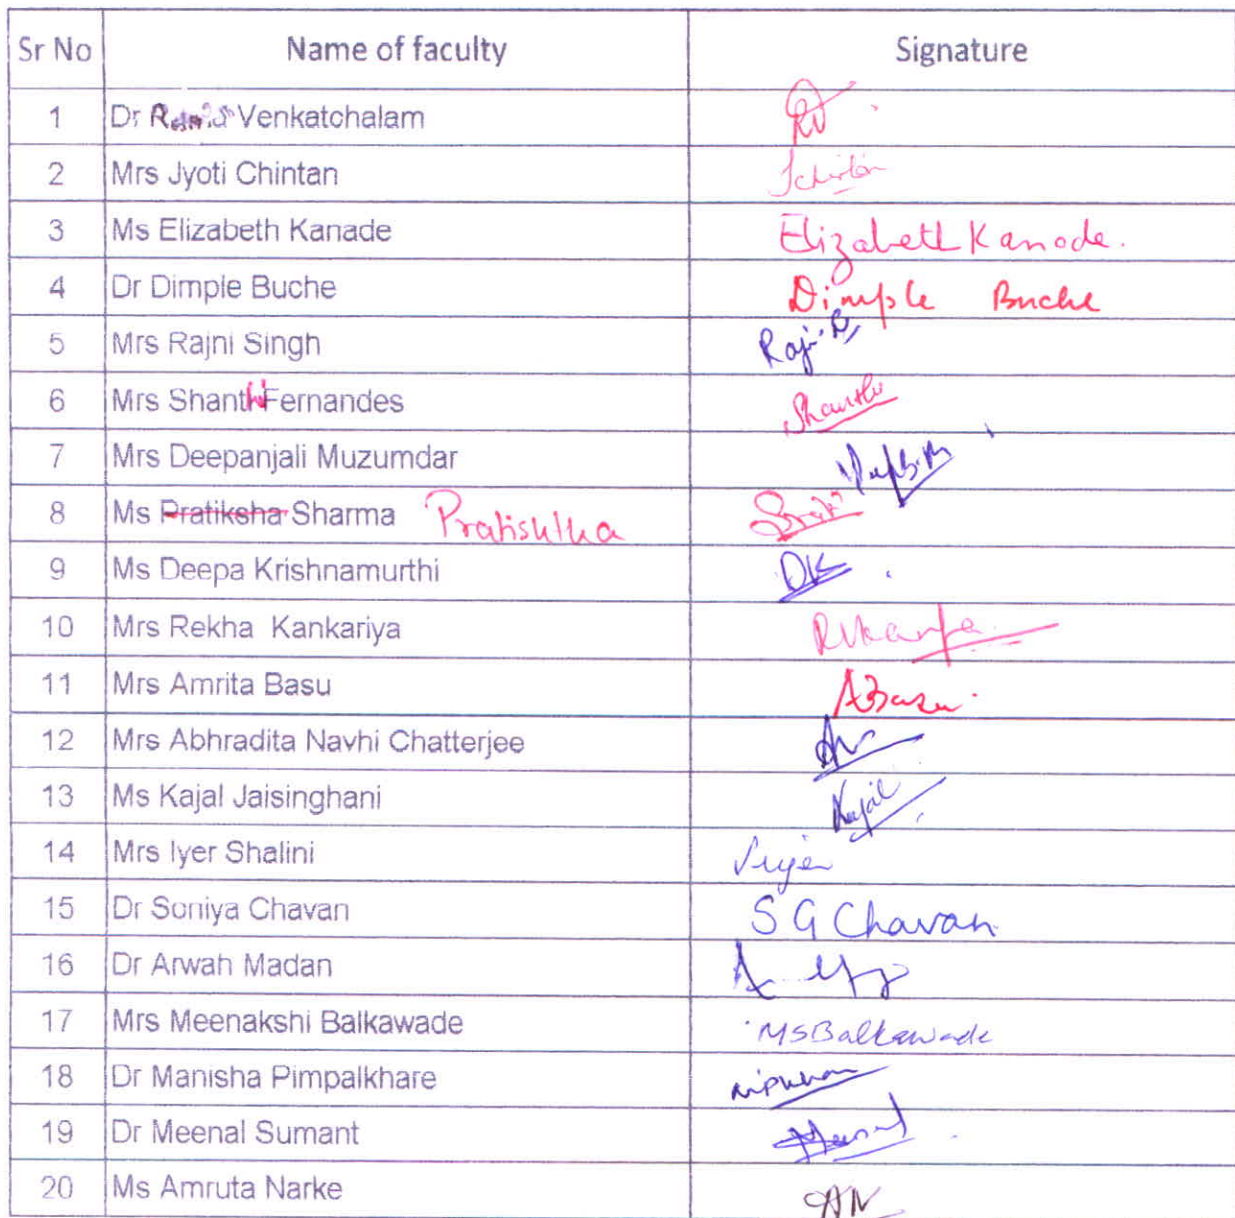 Sr No Name of faculty Signature
1 Dr Venkatchalam RV
2 Mrs Jyoti Chintan JChintan
3 Ms Elizabeth Kanade Elizabeth Kanade.
4 Dr Dimple Buche Dimple Buche
5 Mrs Rajni Singh
6 Mrs Shanthi Fernandes Shanthi
7 Mrs Deepanjali Muzumdar
8 Ms Pratiksha Sharma Pratishtha
9 Ms Deepa Krishnamurthi DK
10 Mrs Rekha Kankariya
11 Mrs Amrita Basu ABasu
12 Mrs Abhradita Navhi Chatterjee
13 Ms Kajal Jaisinghani Kajal
14 Mrs Iyer Shalini
15 Dr Soniya Chavan S G Chavan
16 Dr Arwah Madan
17 Mrs Meenakshi Balkawade MSBalkawade
18 Dr Manisha Pimpalkhare
19 Dr Meenal Sumant
20 Ms Amruta Narke AN